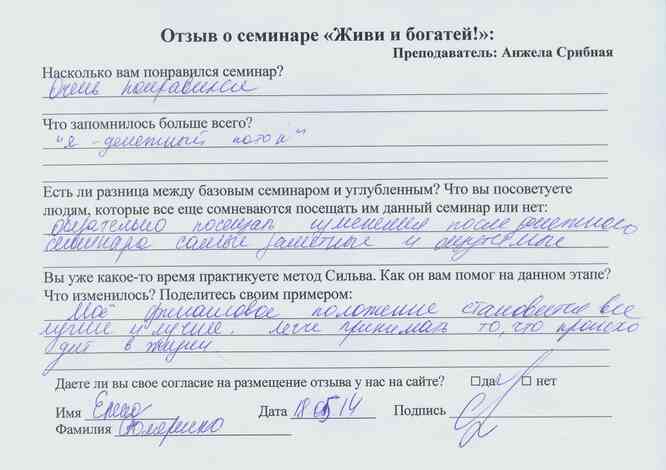 Отзыв о семинаре «Живи и богатей!»:
Преподаватель: Анжела Срибная
Насколько вам понравился семинар?
Очень понравился
Что запомнилось больше всего?
"Я - денежный поток"
Есть ли разница между базовым семинаром и углубленным? Что вы посоветуете
людям, которые все еще сомневаются посещать им данный семинар или нет:
обязательно посещать изменения после денежного
семинара самые заметные и ощутимые
Вы уже какое-то время практикуете метод Сильва. Как он вам помог на данном этапе?
Что изменилось? Поделитесь своим примером:
Моё финансовое положение становится все
лучше и лучше. легче принимать то, что происхо
дит в жизни
Даете ли вы свое согласие на размещение отзыва у нас на сайте? да нет
Имя Елена Дата 18 05 14 Подпись
Фамилия